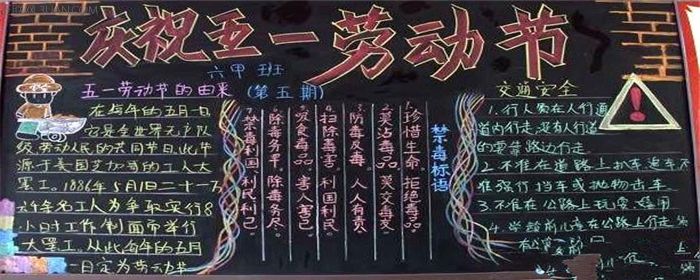 庆祝五一劳动节
六甲班
(第五期)
五一劳动节的由来
在每年的五月一日
它是全世界无产阶
级劳动人民的共同节日,此节
源于美国芝加哥的工人大
罢工。1886年5月1日二十一万
六千余名工人为争取实行8
小时工作制而举行
大罢工。从此每年的五月
一日定为劳动节
禁毒标语
1.珍惜生命 拒绝毒品。
2.莫沾毒品 莫交毒友
3.防毒反毒 人人有责
4.扫除毒害 利国利民。
5.吸食毒品 害人害己。
6.除毒务早 除毒务尽。
7.禁毒利国 利民利己。
交通安全
1.行人须在人行道
道内行走,没有人行道
的要靠路边行走
2.不准在道路上扒车追车不
准强行挡车或抛物击车
3.不准在公路上玩耍嬉闹
4.学龄前儿童在公路上行走